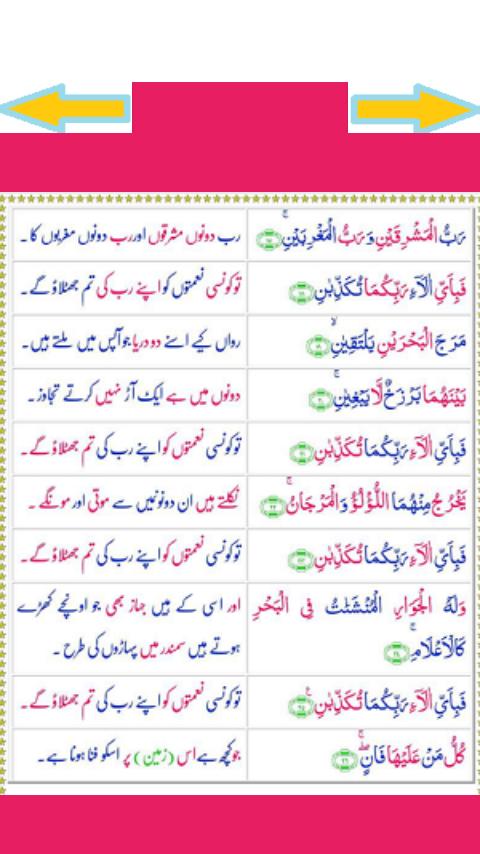 رَبُّ الْمَشْرِقَيْنِ وَرَبُّ الْمَغْرِبَيْنِۚ ﴿۱۷﴾ رب دونوں مشرقوں اور رب دونوں مغربوں کا۔
فَبِاَىِّ اٰلَآءِ رَبِّكُمَا تُكَذِّبٰنِ ﴿۱۸﴾ تو کونسی نعمتوں کو اپنے رب کی تم جھٹلاؤ گے۔
مَرَجَ الْبَحْرَيْنِ يَلْتَقِيٰنِۙ ﴿۱۹﴾ رواں کیے اسنے دو دریا جو آپس میں ملتے ہیں۔
بَيْنَهُمَا بَرْزَخٌ لَّا يَبْغِيٰنِۚ ﴿۲۰﴾ دونوں میں ہے ایک آڑ نہیں کرتے تجاوز۔
فَبِاَىِّ اٰلَآءِ رَبِّكُمَا تُكَذِّبٰنِ ﴿۲۱﴾ تو کونسی نعمتوں کو اپنے رب کی تم جھٹلاؤ گے۔
يَخْرُجُ مِنْهُمَا اللُّؤْلُؤُ وَالْمَرْجَانُۚ ﴿۲۲﴾ نکلتے ہیں ان دونوں سے موتی اور مونگے۔
فَبِاَىِّ اٰلَآءِ رَبِّكُمَا تُكَذِّبٰنِ ﴿۲۳﴾ تو کونسی نعمتوں کو اپنے رب کی تم جھٹلاؤ گے۔
وَلَهُ الْجَوَارِ الْمُنْشَئٰتُ فِى الْبَحْرِ اور اسی کے ہیں جہاز بھی جو اونچے کھڑے
كَالْاَعْلَامِۚ ﴿۲۴﴾ ہوتے ہیں سمندر میں پہاڑوں کی طرح۔
فَبِاَىِّ اٰلَآءِ رَبِّكُمَا تُكَذِّبٰنِ ﴿۲۵﴾ تو کونسی نعمتوں کو اپنے رب کی تم جھٹلاؤ گے۔
كُلُّ مَنْ عَلَيْهَا فَانٍۚ ﴿۲۶﴾ جو کچھ ہے اس (زمین) پر اسکو فنا ہونا ہے۔